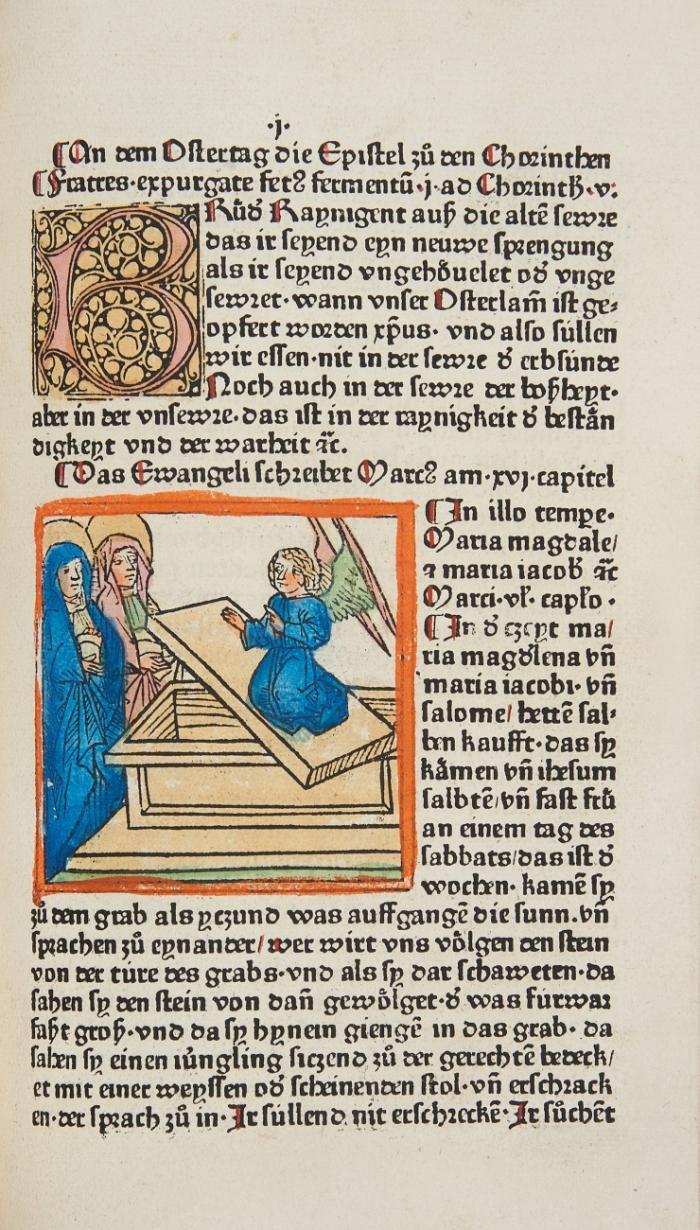 ·j·
¶An dem Ostertag die Epistel zů den Chorinthen
¶Fratres·expurgate fetꝰ fermentū·j·ad Chorinth·v:
BRůđ Raynigent auß die altē sewre
das ir seyend eyn neuwe sprengung
als ir seyend vngehôuelet ođ vnge
sewret·wann vnser Osterlam̄ ist ge⸗
opfert worden xp̄us· vnd also süllen
wir essen·nit in der sewre đ erbsünde
Noch auch in der sewre der boßheyt·
aber in der vnsewre·das ist in der raynigkeit đ bestån
digkeyt vnd der warheit ꝛc̄.
¶Das Ewangeli schreibet Marcꝰ am·xvj·capitel
¶In illo tempe·
Maria magdale/
ꝛ maria iacob ꝛc̄
Marci·vł· capło·
¶In đ czeyt ma/
ria magđlena vn̄
maria iacobi· vn̄
salome/ hettē sal⸗
ben kaufft·das sy
kåmen vn̄ ihesum
salbtē/vn̄ fast frů
an einem tag des
sabbats/das ist đ
wochen· kamē sy
zů dem grab als yczund was auffgangē die sunn·vn̄
sprachen zů eynander/wer wirt vns völgen den stein
von der türe des grabs·vnd als sy dar schaweten·da
sahen sy den stein von dan̄ gewölget·đ was fürwar
faßt groß·vnd da sy hynein giengē in das grab· da
sahen sy einen iüngling siczend zů der gerechtē bedeck/
et mit einer weyssen ođ scheinenden stol·vn̄ erschrack
en·der sprach zů in·Ir süllend nit erschreckē·Ir sůchēt